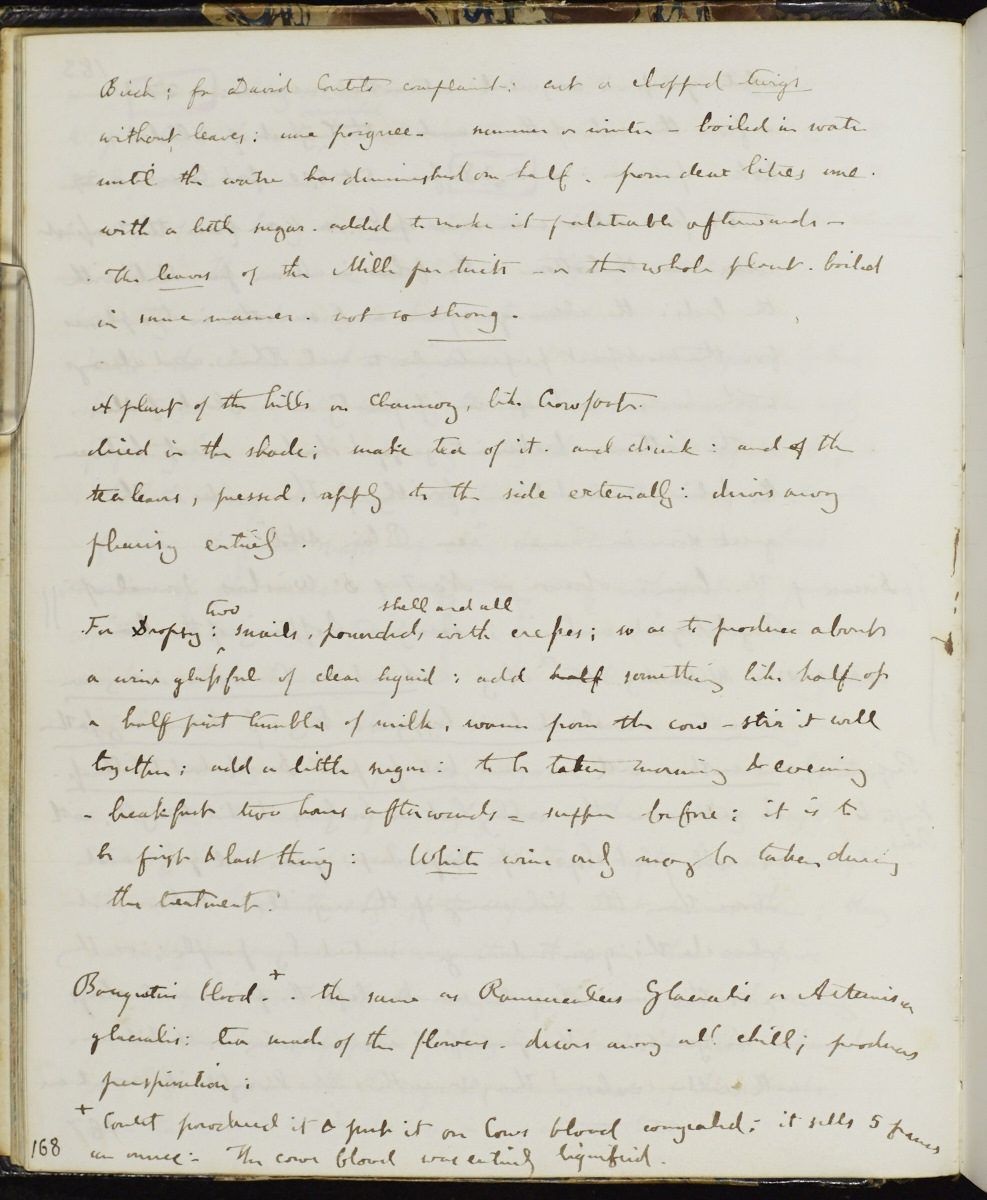 Birch; for David Couttets complaint: cut or chopped twigs
without leaves: une poignee - summer or winter - boiled in water
until the water has diminished one half. from deux litres une.
with a little sugar. added to make it palatable afterwards -
. The leaves of the Mille pertuits - or the whole plant. boiled
in same manner. not so strong.
A plant of the hills on Chamouny, like Crowfoot.
dried in the shade; make tea of it. and drink: and of the
tealeaves, pressed, apply to the side externally: drives away
pleurisy entirely.
two shell and all
For Dropsy: snails, pounded, with ; so as to produce about
a wine glassful of clear liquid: add half something like half of
a half pint tumbler of milk, warm from the cow - stir it well
together; add a little sugar: to be taken morning & evening
- breakfast two hours afterwards - supper before; it is to
be first & last thing: White wine only may be taken during
the treatment.
Bouquetin blood.+ . the same as Ranunculus Glacialis or Artemisia
glacialis: tea made of the flowers. drives away all chill; produces
perspiration:
+ Coutet produced it & put it on Cows blood congealed; it sells 5 francs
an ounce - The cows blood was entirely liquified.
168